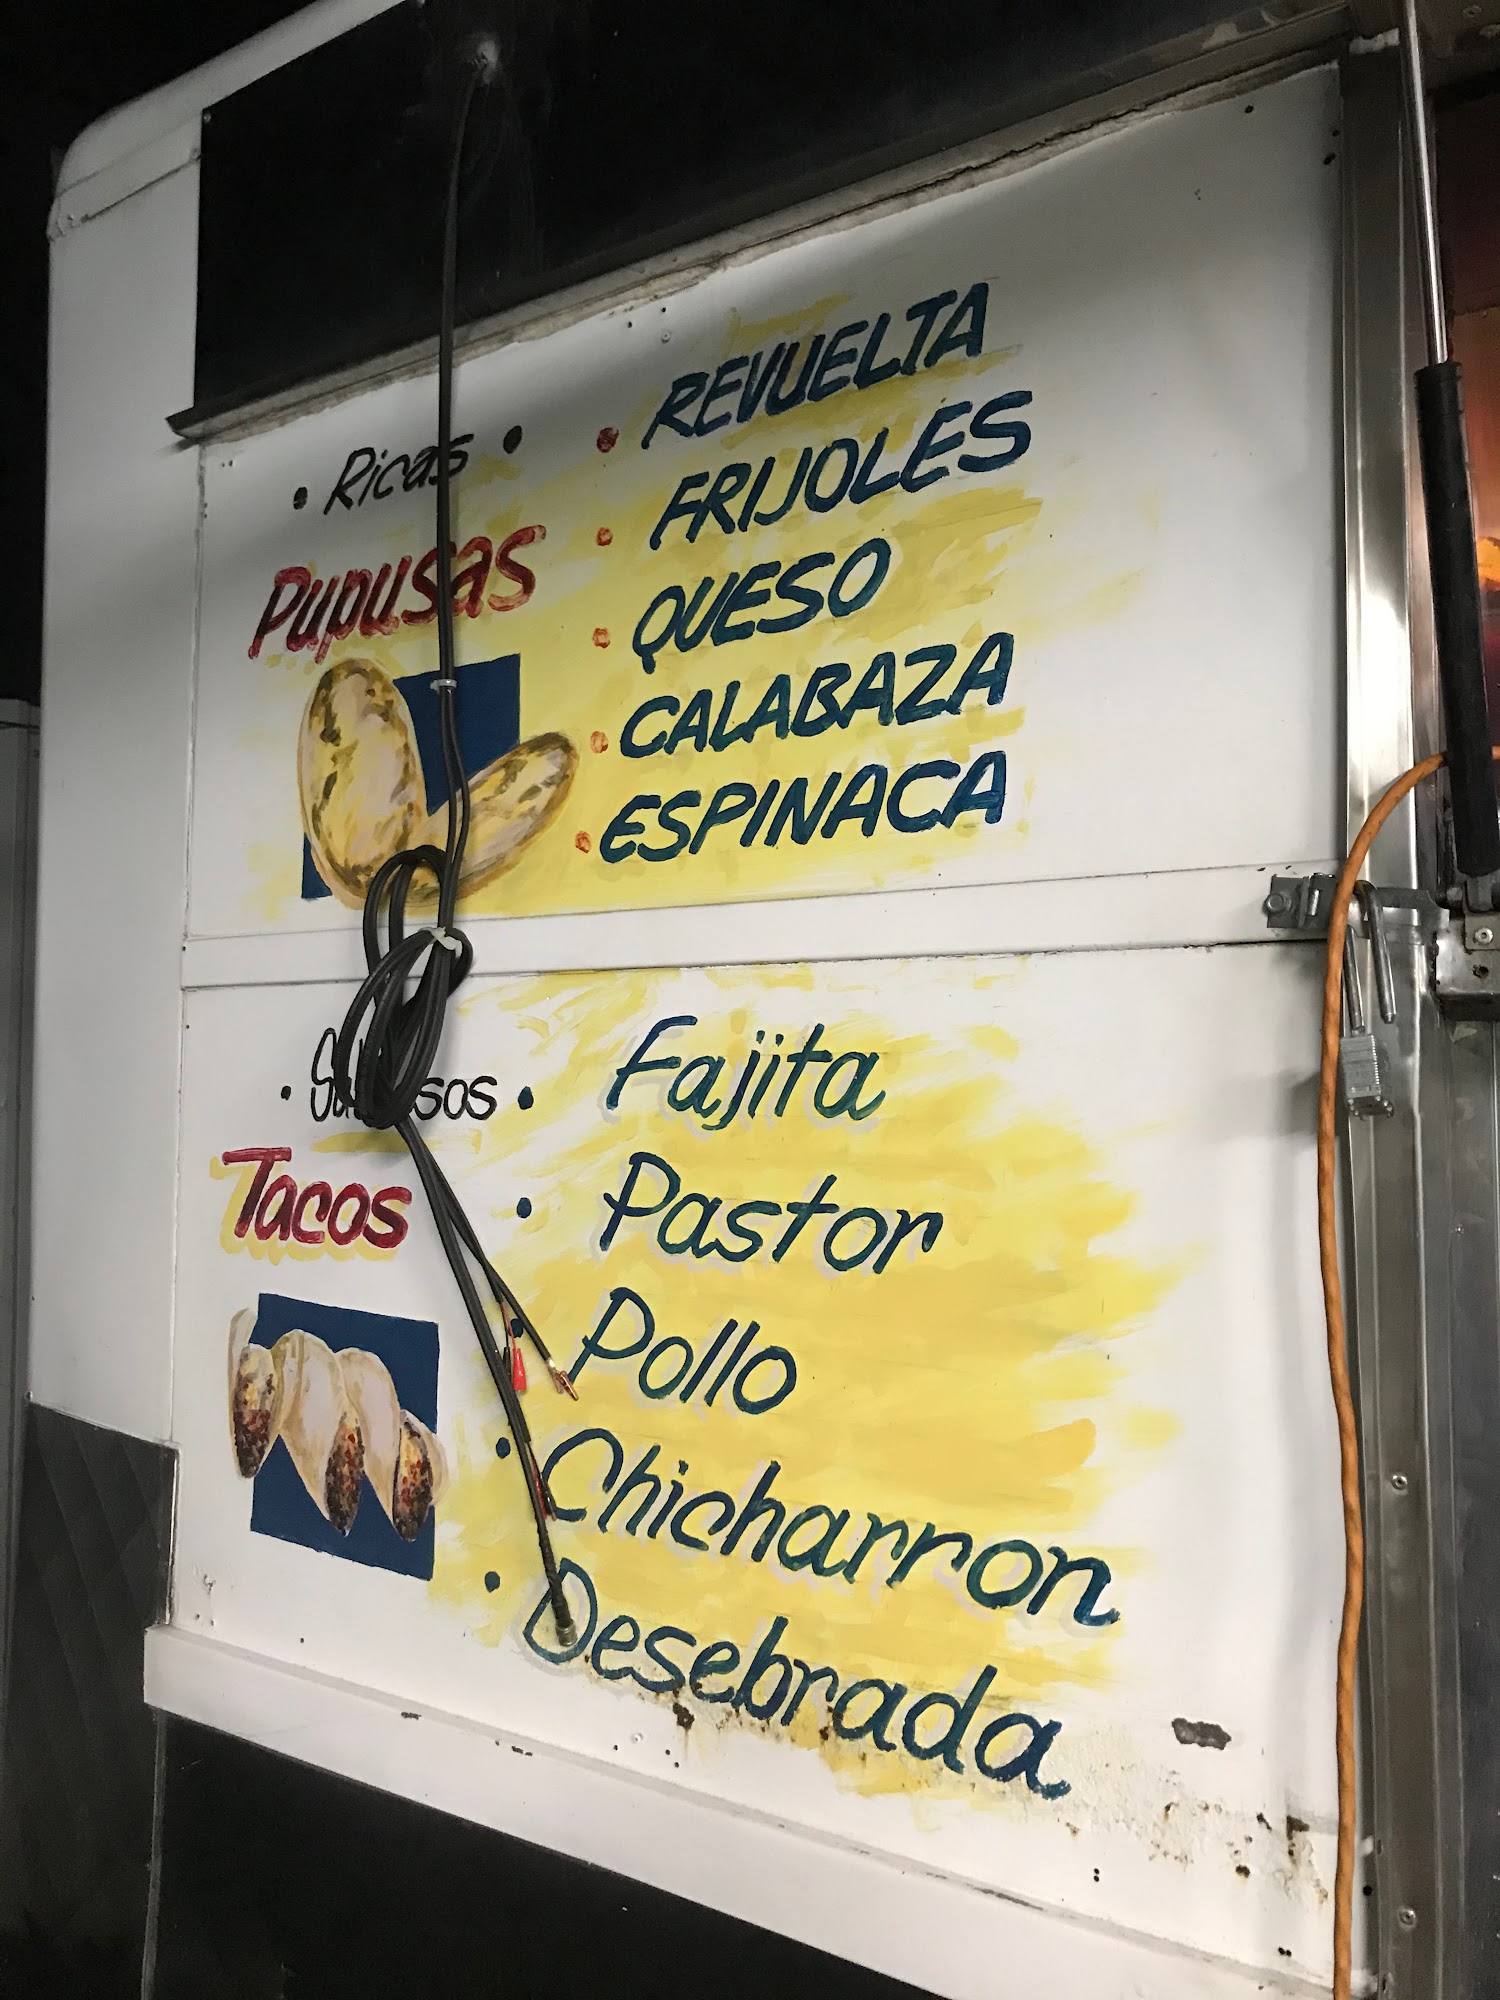 Ricas
Pupusas
REVUELTA
FRIJOLES
QUESO
CALABAZA
ESPINACA
Tacos
Fajita
Pastor
Pollo
Chicharron
Desebrada